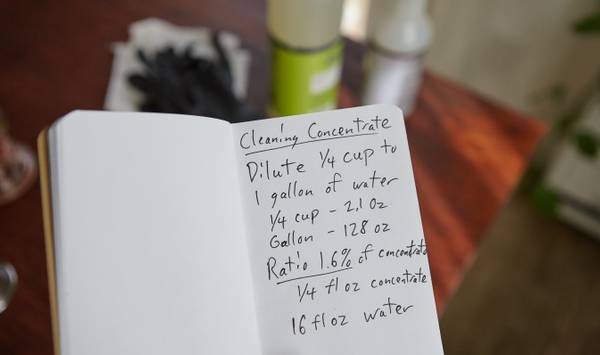 Cleaning Concentrate
Dilute 1/4 cup to
1 gallon of water
1/4 cup - 2.1 oz
Gallon - 128 oz
Ratio 1.6% of concentrate
1/4 fl oz concentrate
16 fl oz water